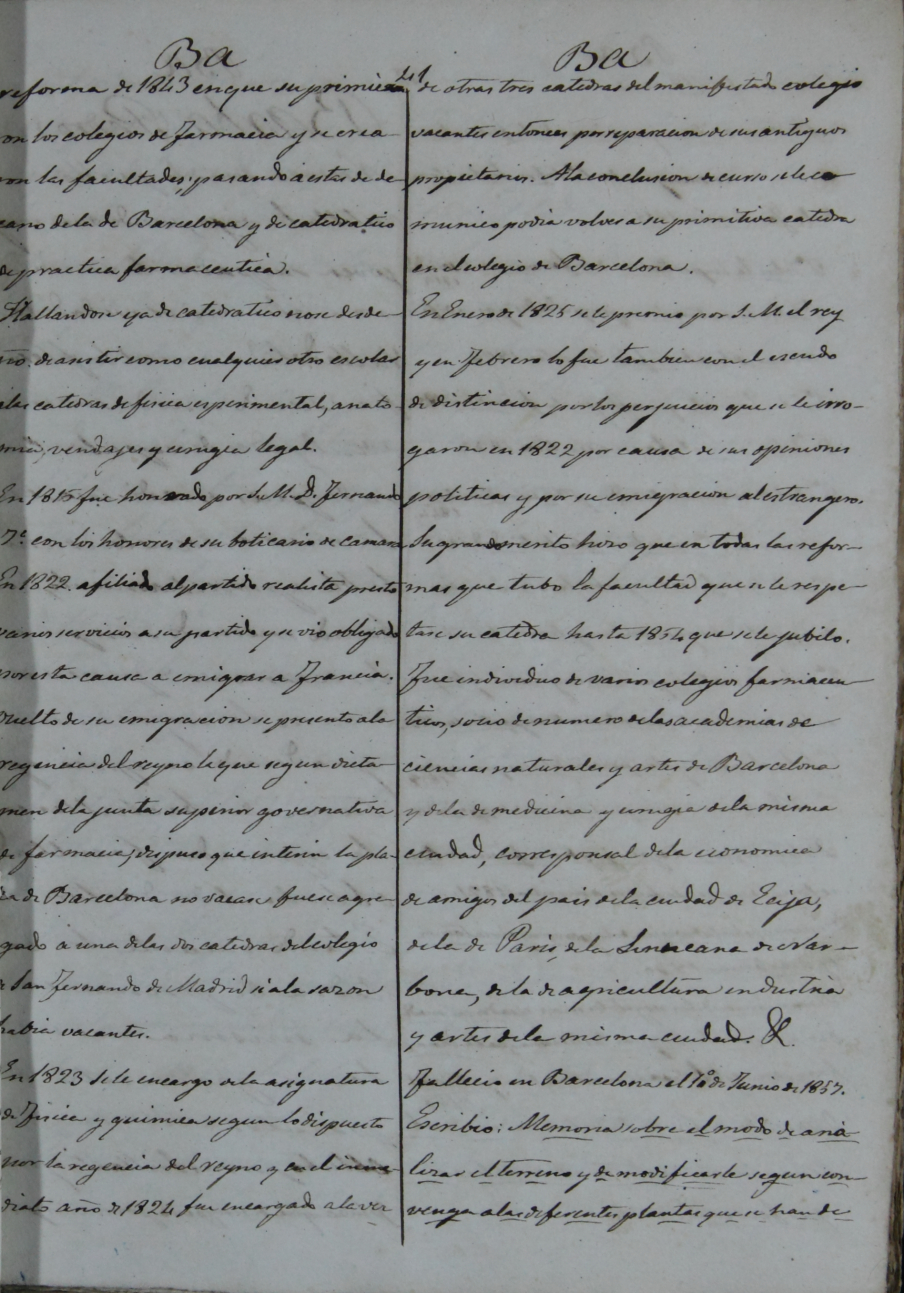 Ba
reforma de 1843 en que suprimiera
on los colegios de farmacia y se crea-
ron las facultades; pasando a estas de de-
cano de la de Barcelona y de catedratico
de practica farmaceutica.
Hallandose ya de catedratico no se desde-
ño de asistir como cualquier otro escolar
a las catedras de fisica esperimental, anato-
mia, vendajes y cirugia legal.
En 1815 fue honrado por S. M. D. Fernando
7º con los honores de su boticario de camara
En 1822 afiliado al partido realista presto
varios servicios a su partido y se vio obligado
por esta causa a emigrar a Francia.
Vuelto de su emigracion se presento a la
regencia del reyno la que segun dicta-
men de la junta superior governativa
de farmacia; dispuso que interin la pla-
za de Barcelona no vacase fuese agre-
gado a una de las dos catedras del colegio
de San Fernando de Madrid si a la sazon
habia vacantes.
En 1823 se le encargo de la asignatura
de Fisica y quimica segun lo dispuesto
por la regencia del reyno y en el inme-
diato año de 1824 fue encargado a la vez
Ba
41
de otras tres catedras del manifestado colegio
vacantes entonces por separacion de sus antiguos
propietarios. A la conclusion de curso se le co-
munico podia volver a su primitiva catedra
en el colegio de Barcelona.
En Enero de 1825 se le premio por S. M. el rey
y en Febrero lo fue tambien con el escudo
de distincion por los perjuicios que se le irro-
garon en 1822 por causa de sus opiniones
politicas y por su emigracion al estrangero.
Su grande merito hizo que en todas las refor-
mas que tubo la facultad que se le respe-
tase su catedra hasta 1854 que se le jubilo.
Fue individuo de varios colegios farmaceu-
ticos, socio de numero de las academias de
ciencias naturales y artes de Barcelona
y de la de medicina y cirugia de la misma
ciudad, corresponsal de la economica
de amigos del pais de la ciudad de Ecija,
de la de Paris, de la Lineana de Nar-
bona, de la de agricultura industria
y artes de la misma ciudad. &.
Fallecio en Barcelona el 1º de Junio de 1857.
Escribio: Memoria sobre el modo de ana-
lizar el terreno y de modificarle segun con-
venga a las diferentes plantas que se han de